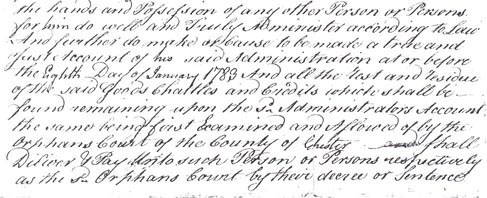 the hands and Possession of any other Person or Persons
for him do well and Truly Administer according to Law
And further do make or Cause to be made a true and
Just Account of his said Administration at or before
the Eighth Day of January 1783 And all the rest and residue
of the said Goods Chattles and Credits which shall be
found remaining upon the sd. Administrators Account
the same being first Examined and Allowed of by the
Orphans Court of the County of Chester shall
Deliver & Pay unto such Person or Persons respectively
as the sd. Orphans Court by their decree or Sentence